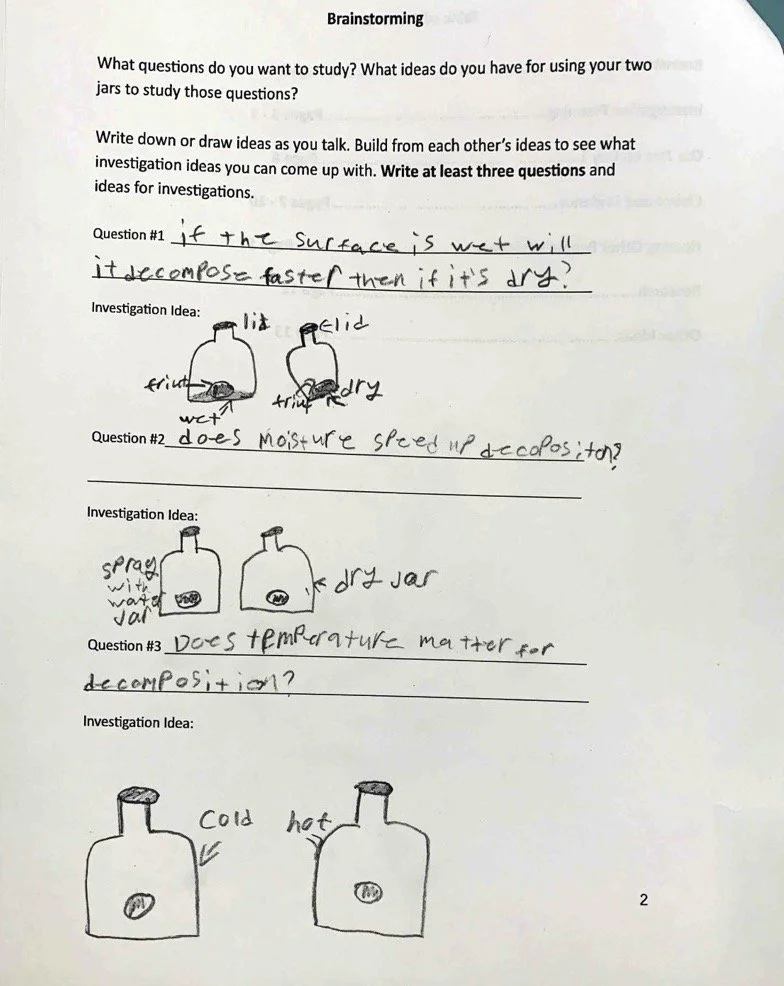 Brainstorming
What questions do you want to study? What ideas do you have for using your two
jars to study those questions?
Write down or draw ideas as you talk. Build from each other's ideas to see what
investigation ideas you can come up with. Write at least three questions and
ideas for investigations.
Question #1 if the surface is wet will
it decompose faster then if it's dry?
Investigation Idea:
lid
lid
friut
wet
friut
dry
Question #2 does moisture speed up decopositon?
Investigation Idea:
spray
with
water
Jar
dry Jar
Question #3 Does temperature matter for
decomposition?
Investigation Idea:
Cold
hot
2